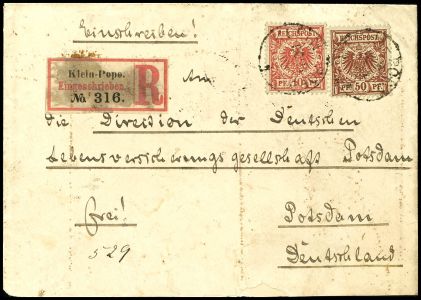 Einschreiben!
REICHSPOST
REICHSPOST
PF. 10 PF.
PF. 50 PF.
Klein-Popo.
Eingeschrieben.
№ 316.
R
An
die Direction der Deutschen
Lebensversicherungsgesellschaft Potsdam
frei!
Potsdam
529
Deutschland